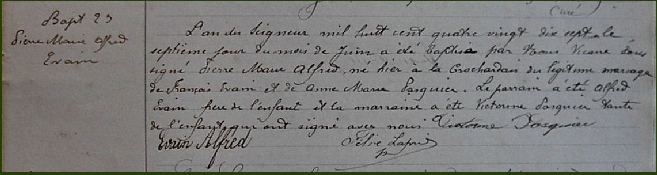 Curé
Bapt 23
Pierre Marie Alfred
Evain
L'an du Seigneur mil huit cent quatre vingt dix sept le
septième jour du mois de Juin a été baptisé par Nous Vicaire sous
signé Pierre Marie Alfred, né hier à la Crochardais du légitime mariage
de François Evain et de Anne Marie Pasquier. Le parrain a été Alfred
Evain frère de l'enfant et la marraine a été Victorine Pasquier tante
de l'enfant, qui ont signé avec nous. Victorine Pasquier
Evain Alfred